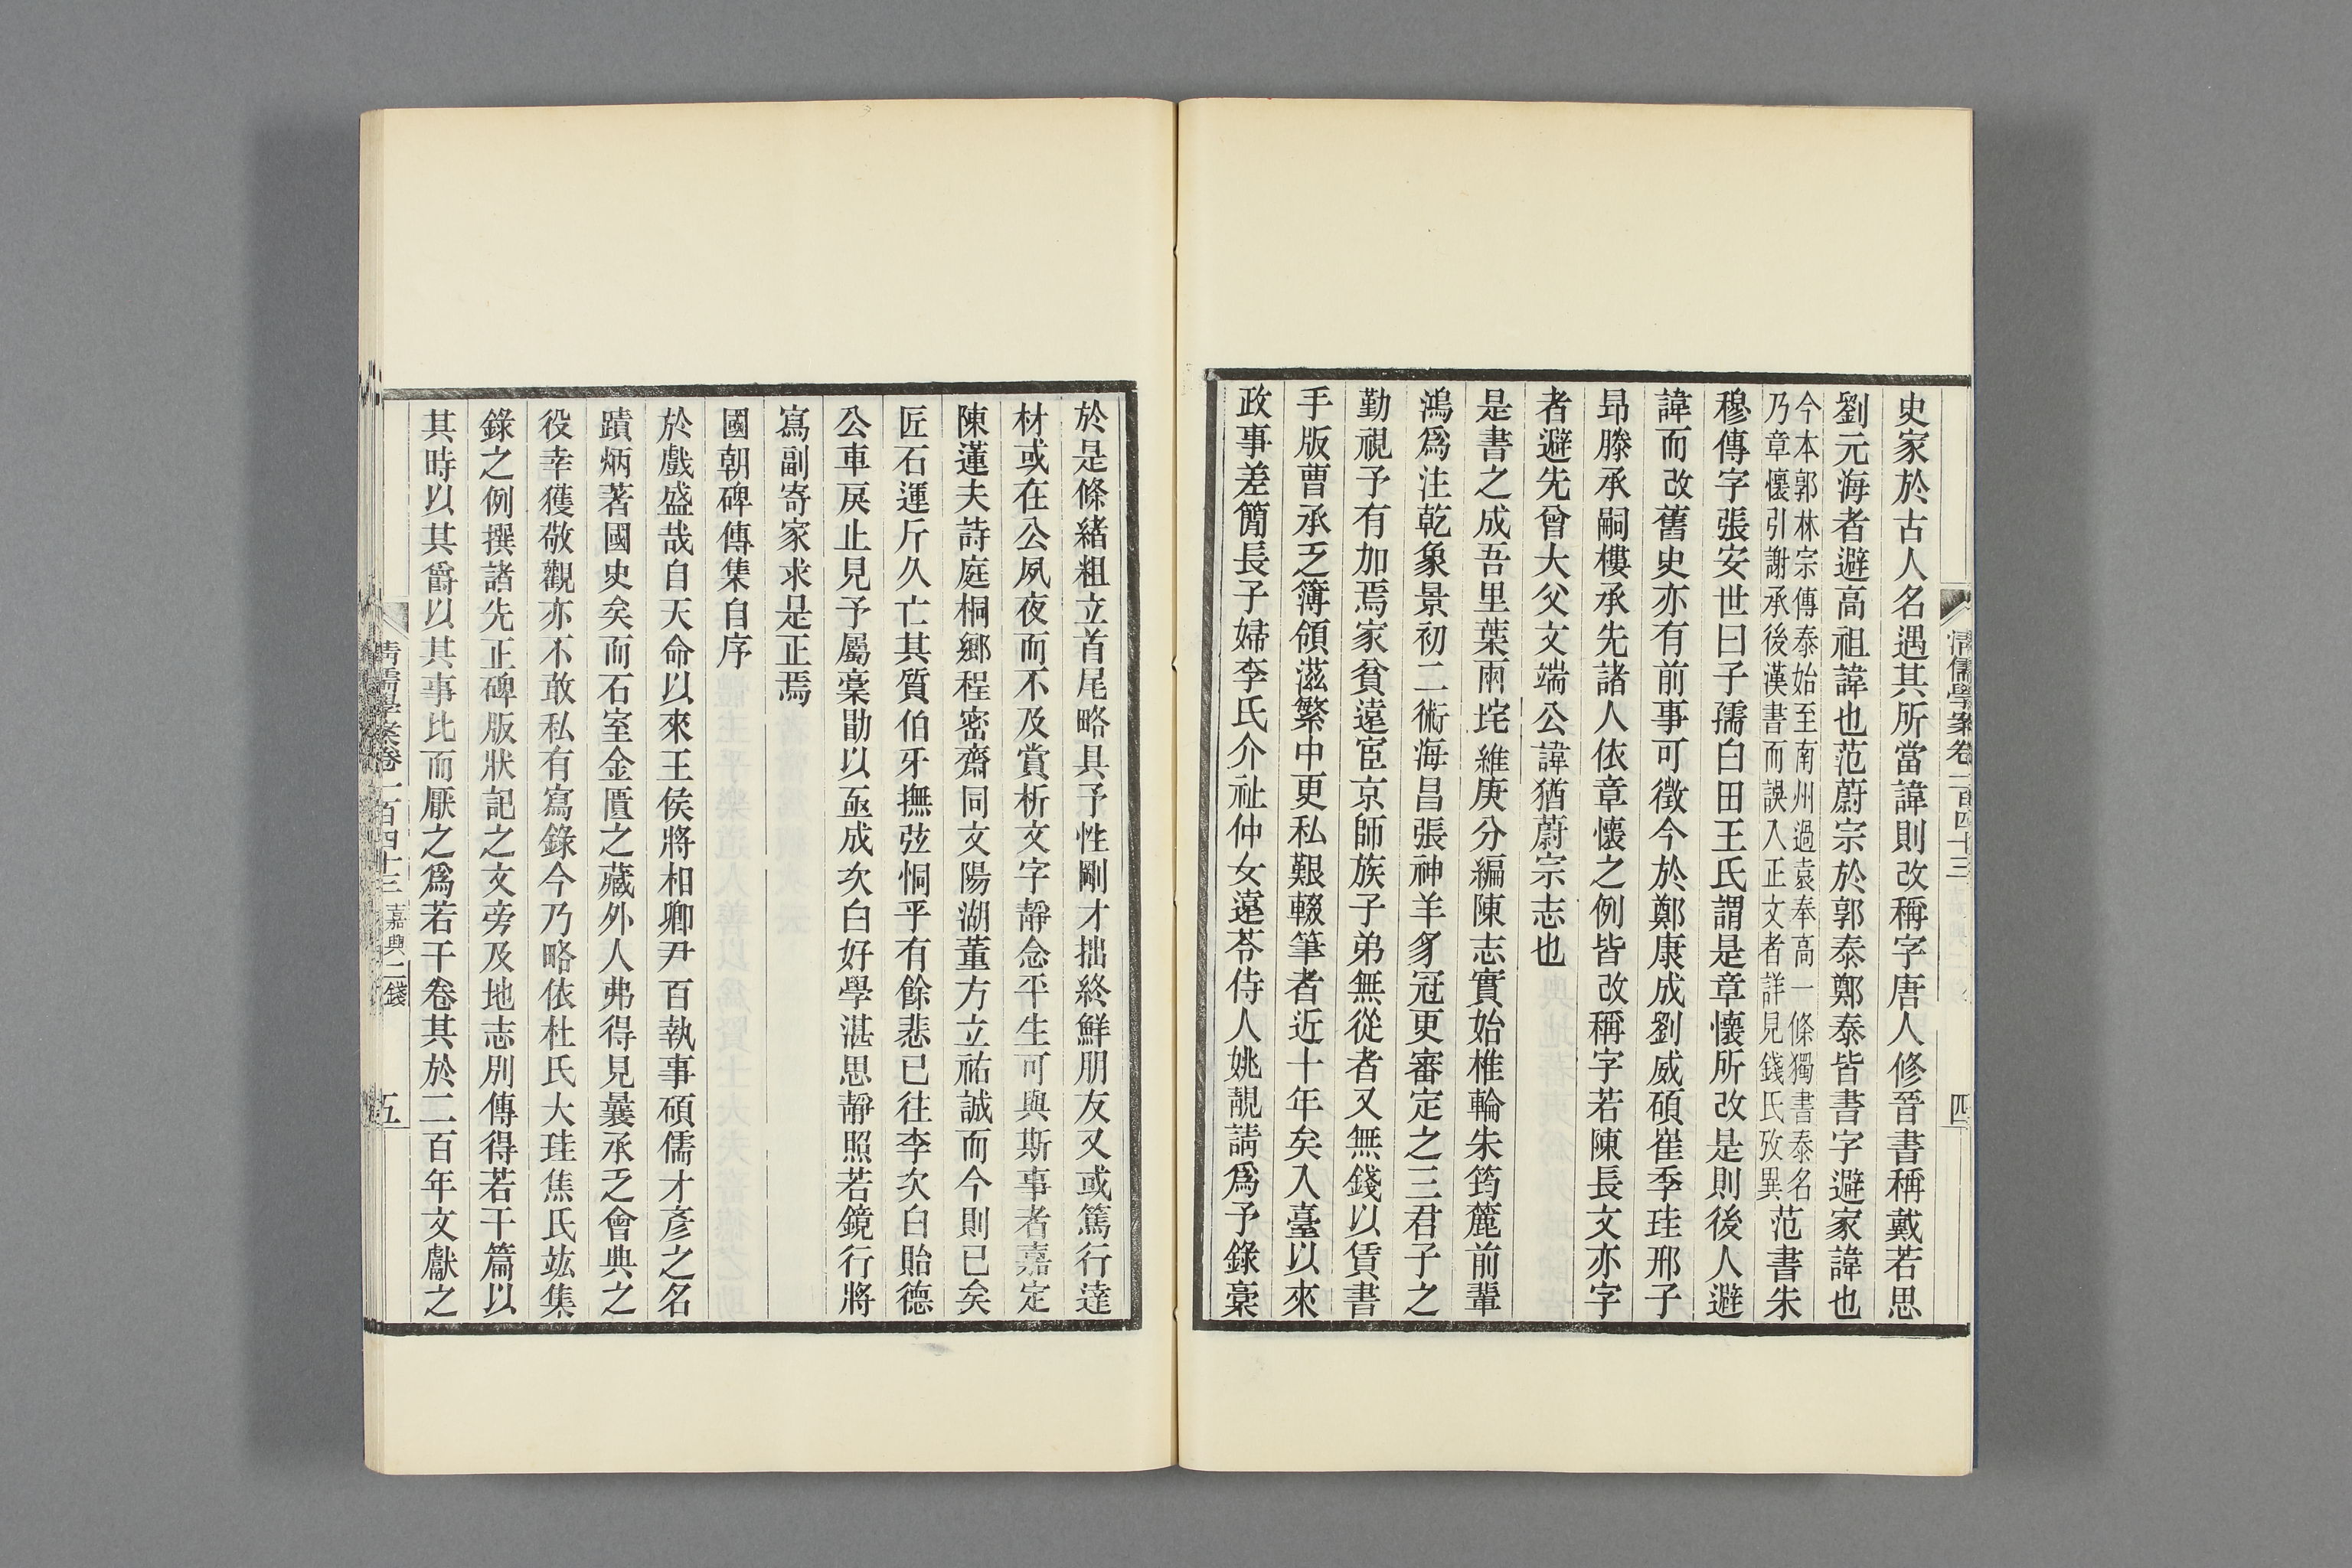 清儒學案卷一百四十三
四
史家於古人名遇其所當諱則改稱字唐人修晉書稱戴若思
劉元海者避高祖諱也范蔚宗於郭泰鄭泰皆書字避家諱也
今本郭林宗傳泰始至南州過袁奉高一條獨書泰名
乃章懷引謝承後漢書而誤入正文者詳見錢氏攷異
范書朱
穆傳字張安世曰子孺白田王氏謂是章懷所改是則後人避
諱而改舊史亦有前事可徵今於鄭康成劉威碩崔季珪邢子
昂滕承嗣樓承先諸人依章懷之例皆改稱字若陳長文亦字
者避先曾大父文端公諱猶蔚宗志也
是書之成吾里葉雨垞維庚分編陳志實始椎輪朱筠麓前輩
鴻爲注乾象景初二術海昌張神羊豸冠更審定之三君子之
勤視予有加焉家貧遠宦京師族子弟無從者又無錢以賃書
手版曹承乏簿領滋繁中更私艱輟筆者近十年矣入臺以來
政事差簡長子婦李氏介祉仲女遠苓侍人姚靚請爲予錄稾
於是條緒粗立首尾略具予性剛才拙終鮮朋友又或篤行達
材或在公夙夜而不及賞析文字靜念平生可與斯事者嘉定
陳蓮夫詩庭桐鄉程密齋同文陽湖董方立祐誠而今則已矣
匠石運斤久亡其質伯牙撫弦恫乎有餘悲已往李次白貽德
公車戾止見予屬稾勖以亟成次白好學湛思靜照若鏡行將
寫副寄家求是正焉
國朝碑傳集自序
於戲盛哉自天命以來王侯將相卿尹百執事碩儒才彥之名
蹟炳著國史矣而石室金匱之藏外人弗得見曩承乏會典之
役幸獲敬觀亦不敢私有寫錄今乃略依杜氏大珪焦氏竑集
錄之例撰諸先正碑版狀記之文旁及地志別傳得若干篇以
其時以其爵以其事比而厭之爲若干卷其於二百年文獻之
清儒學案卷一百四十三 嘉興二錢
五